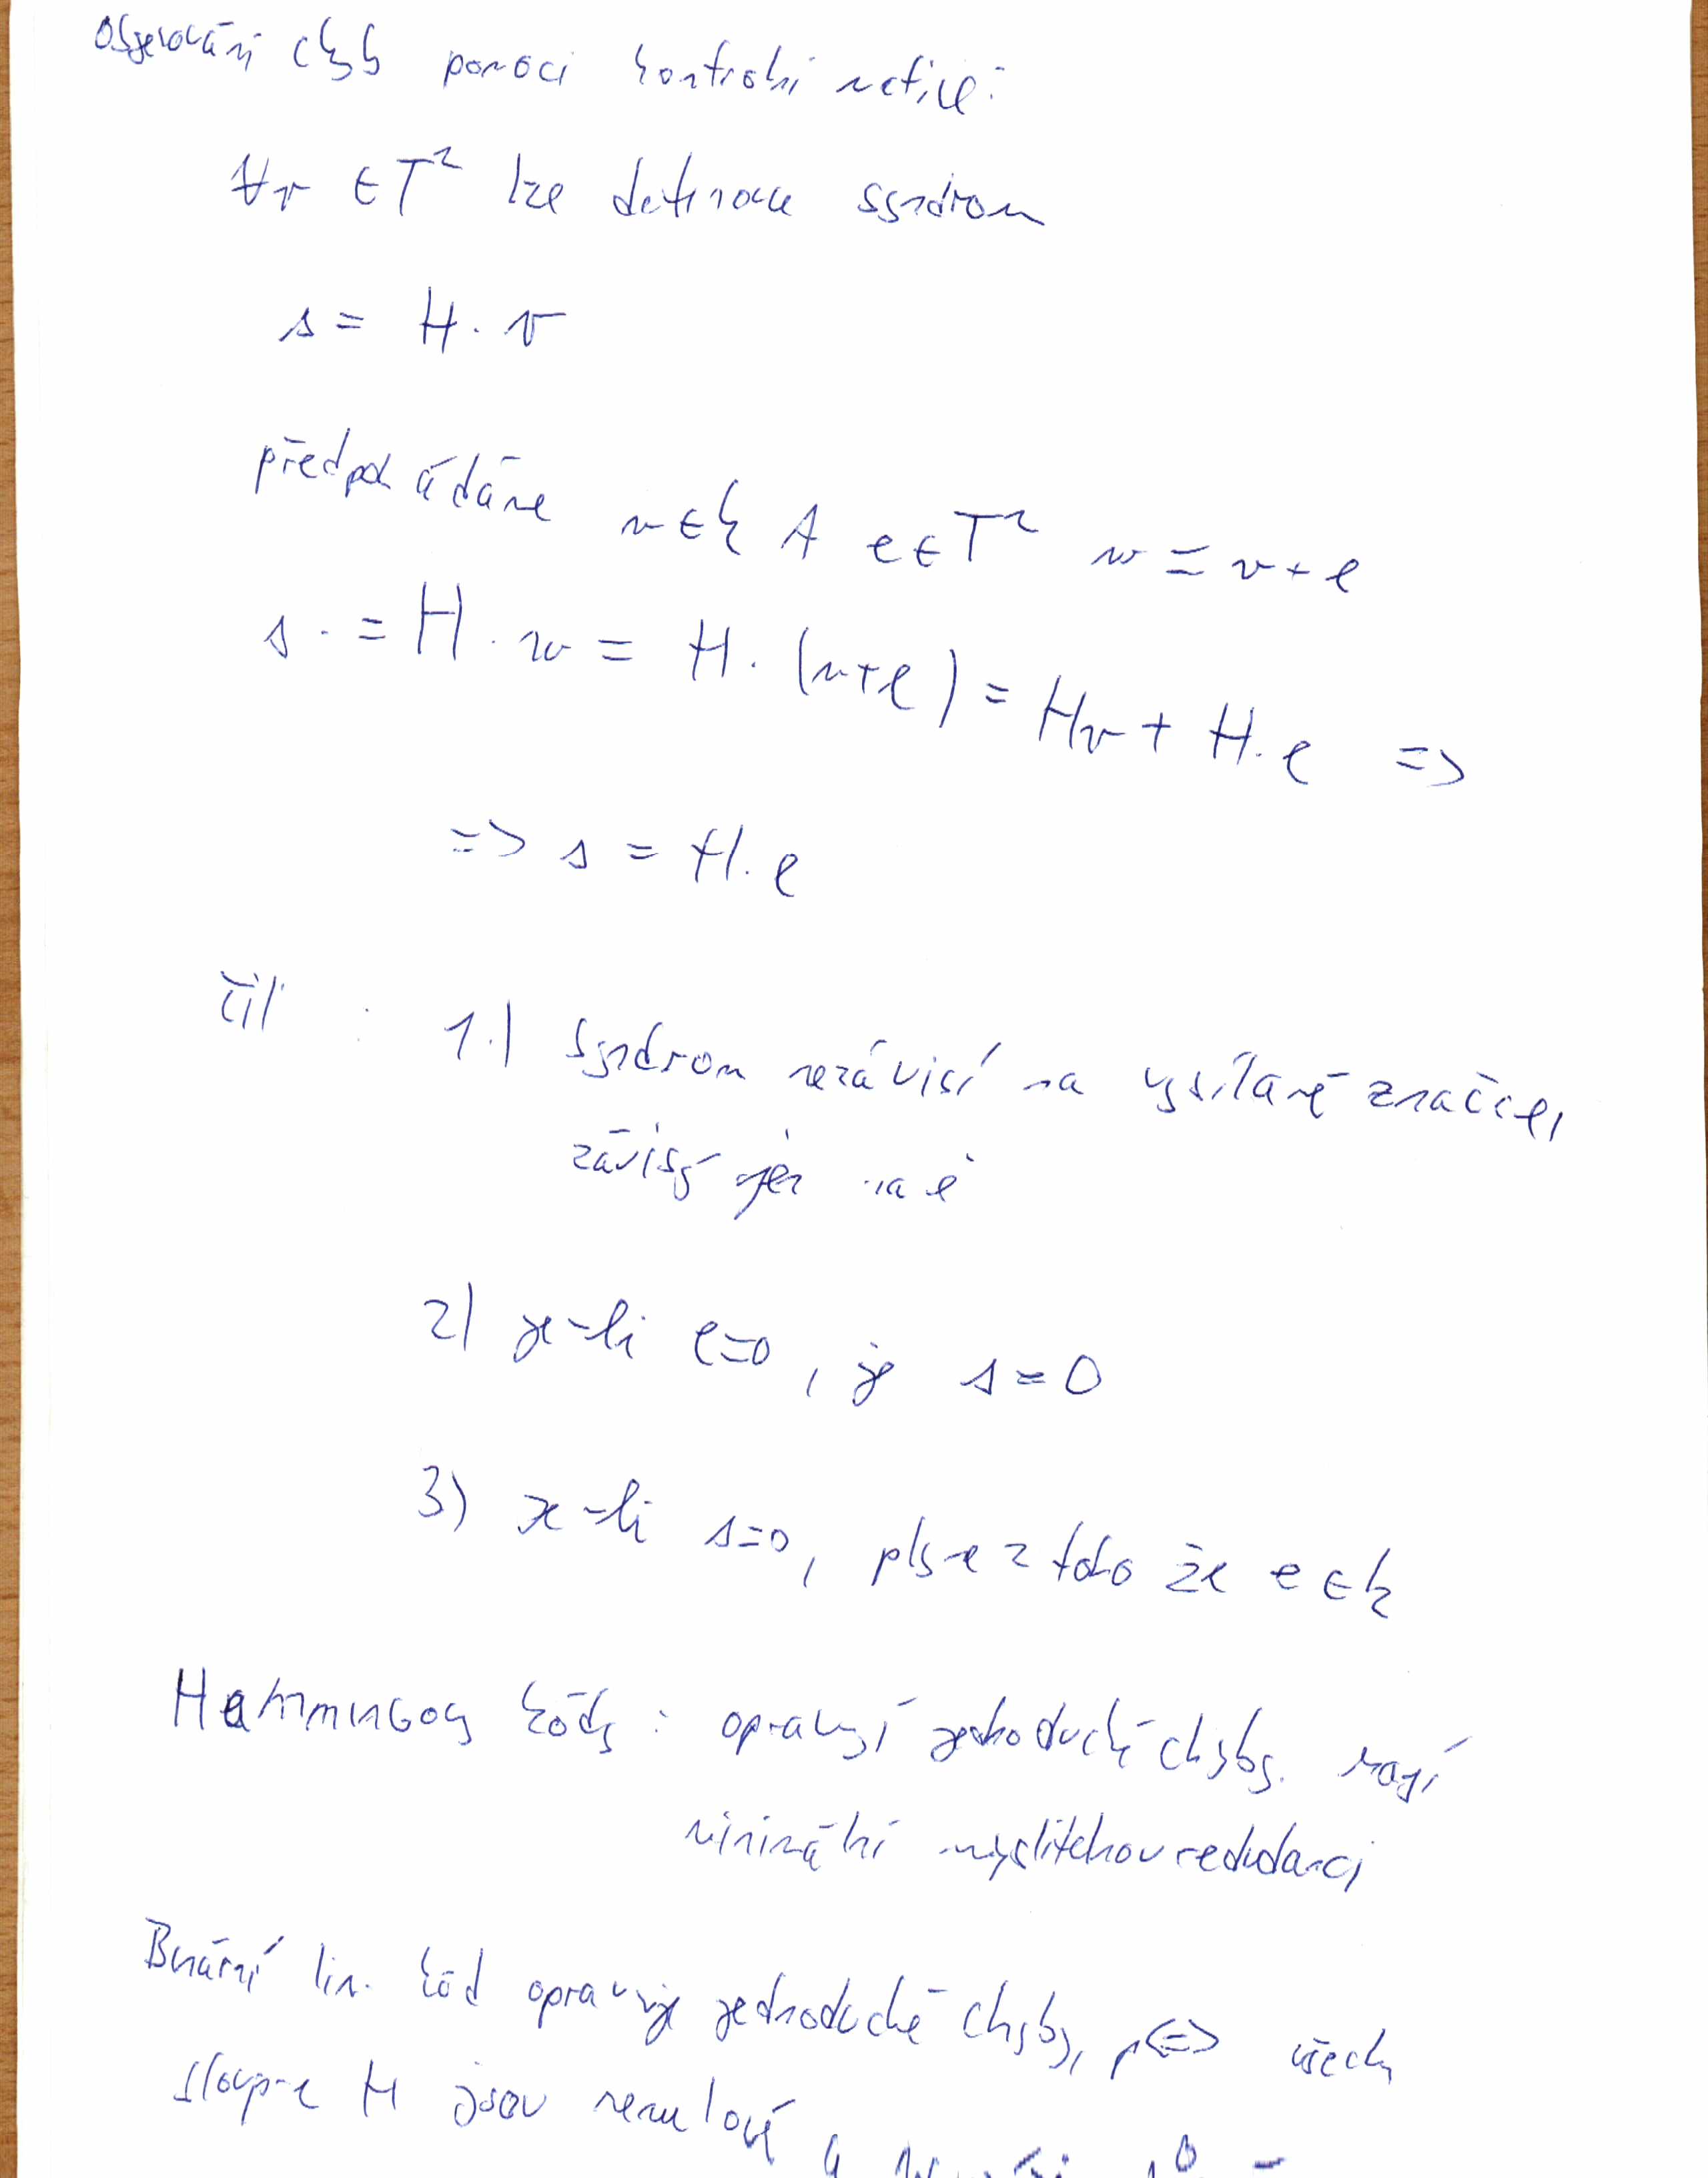 Objevování chyb pomocí kontrolní matice:
∀v ∈ T² lze definovat syndrom
s = H · v
předpokládáme v ∈ k A e ∈ T² w = v + e
s = H · w = H · (v+e) = Hv + H·e =>
=> s = H·e
čili : 1.) Syndrom nezávisí na vysílané značce,
závisí jen na e
2) je-li e=0, je s=0
3) je-li s=0, plyne z toho že e ∈ k
Hammingovy kódy : opravují jednoduché chyby. mají
minimální myslitelnou redudanci
Binární lin. kód opravuje jednoduché chyby, <=> všechny
sloupce H jsou nenulové
a